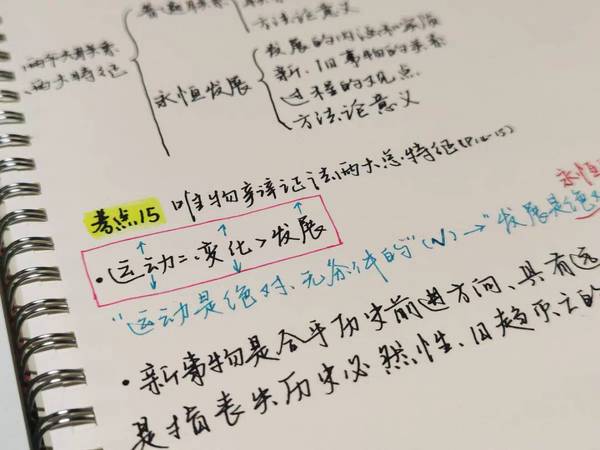 普遍联系
方法论意义
两个大联系
两大特征
永恒发展
发展的内涵和实质
新、旧事物的关系
过程的观点
方法论意义
考点15 唯物辩证法两大总特征(P12-15)
·运动=变化>发展
永恒
"运动是绝对、无条件的"(N)→"发展是绝对
·新事物是合乎历史前进方向、具有远
是指丧失历史必然性、日趋灭亡的